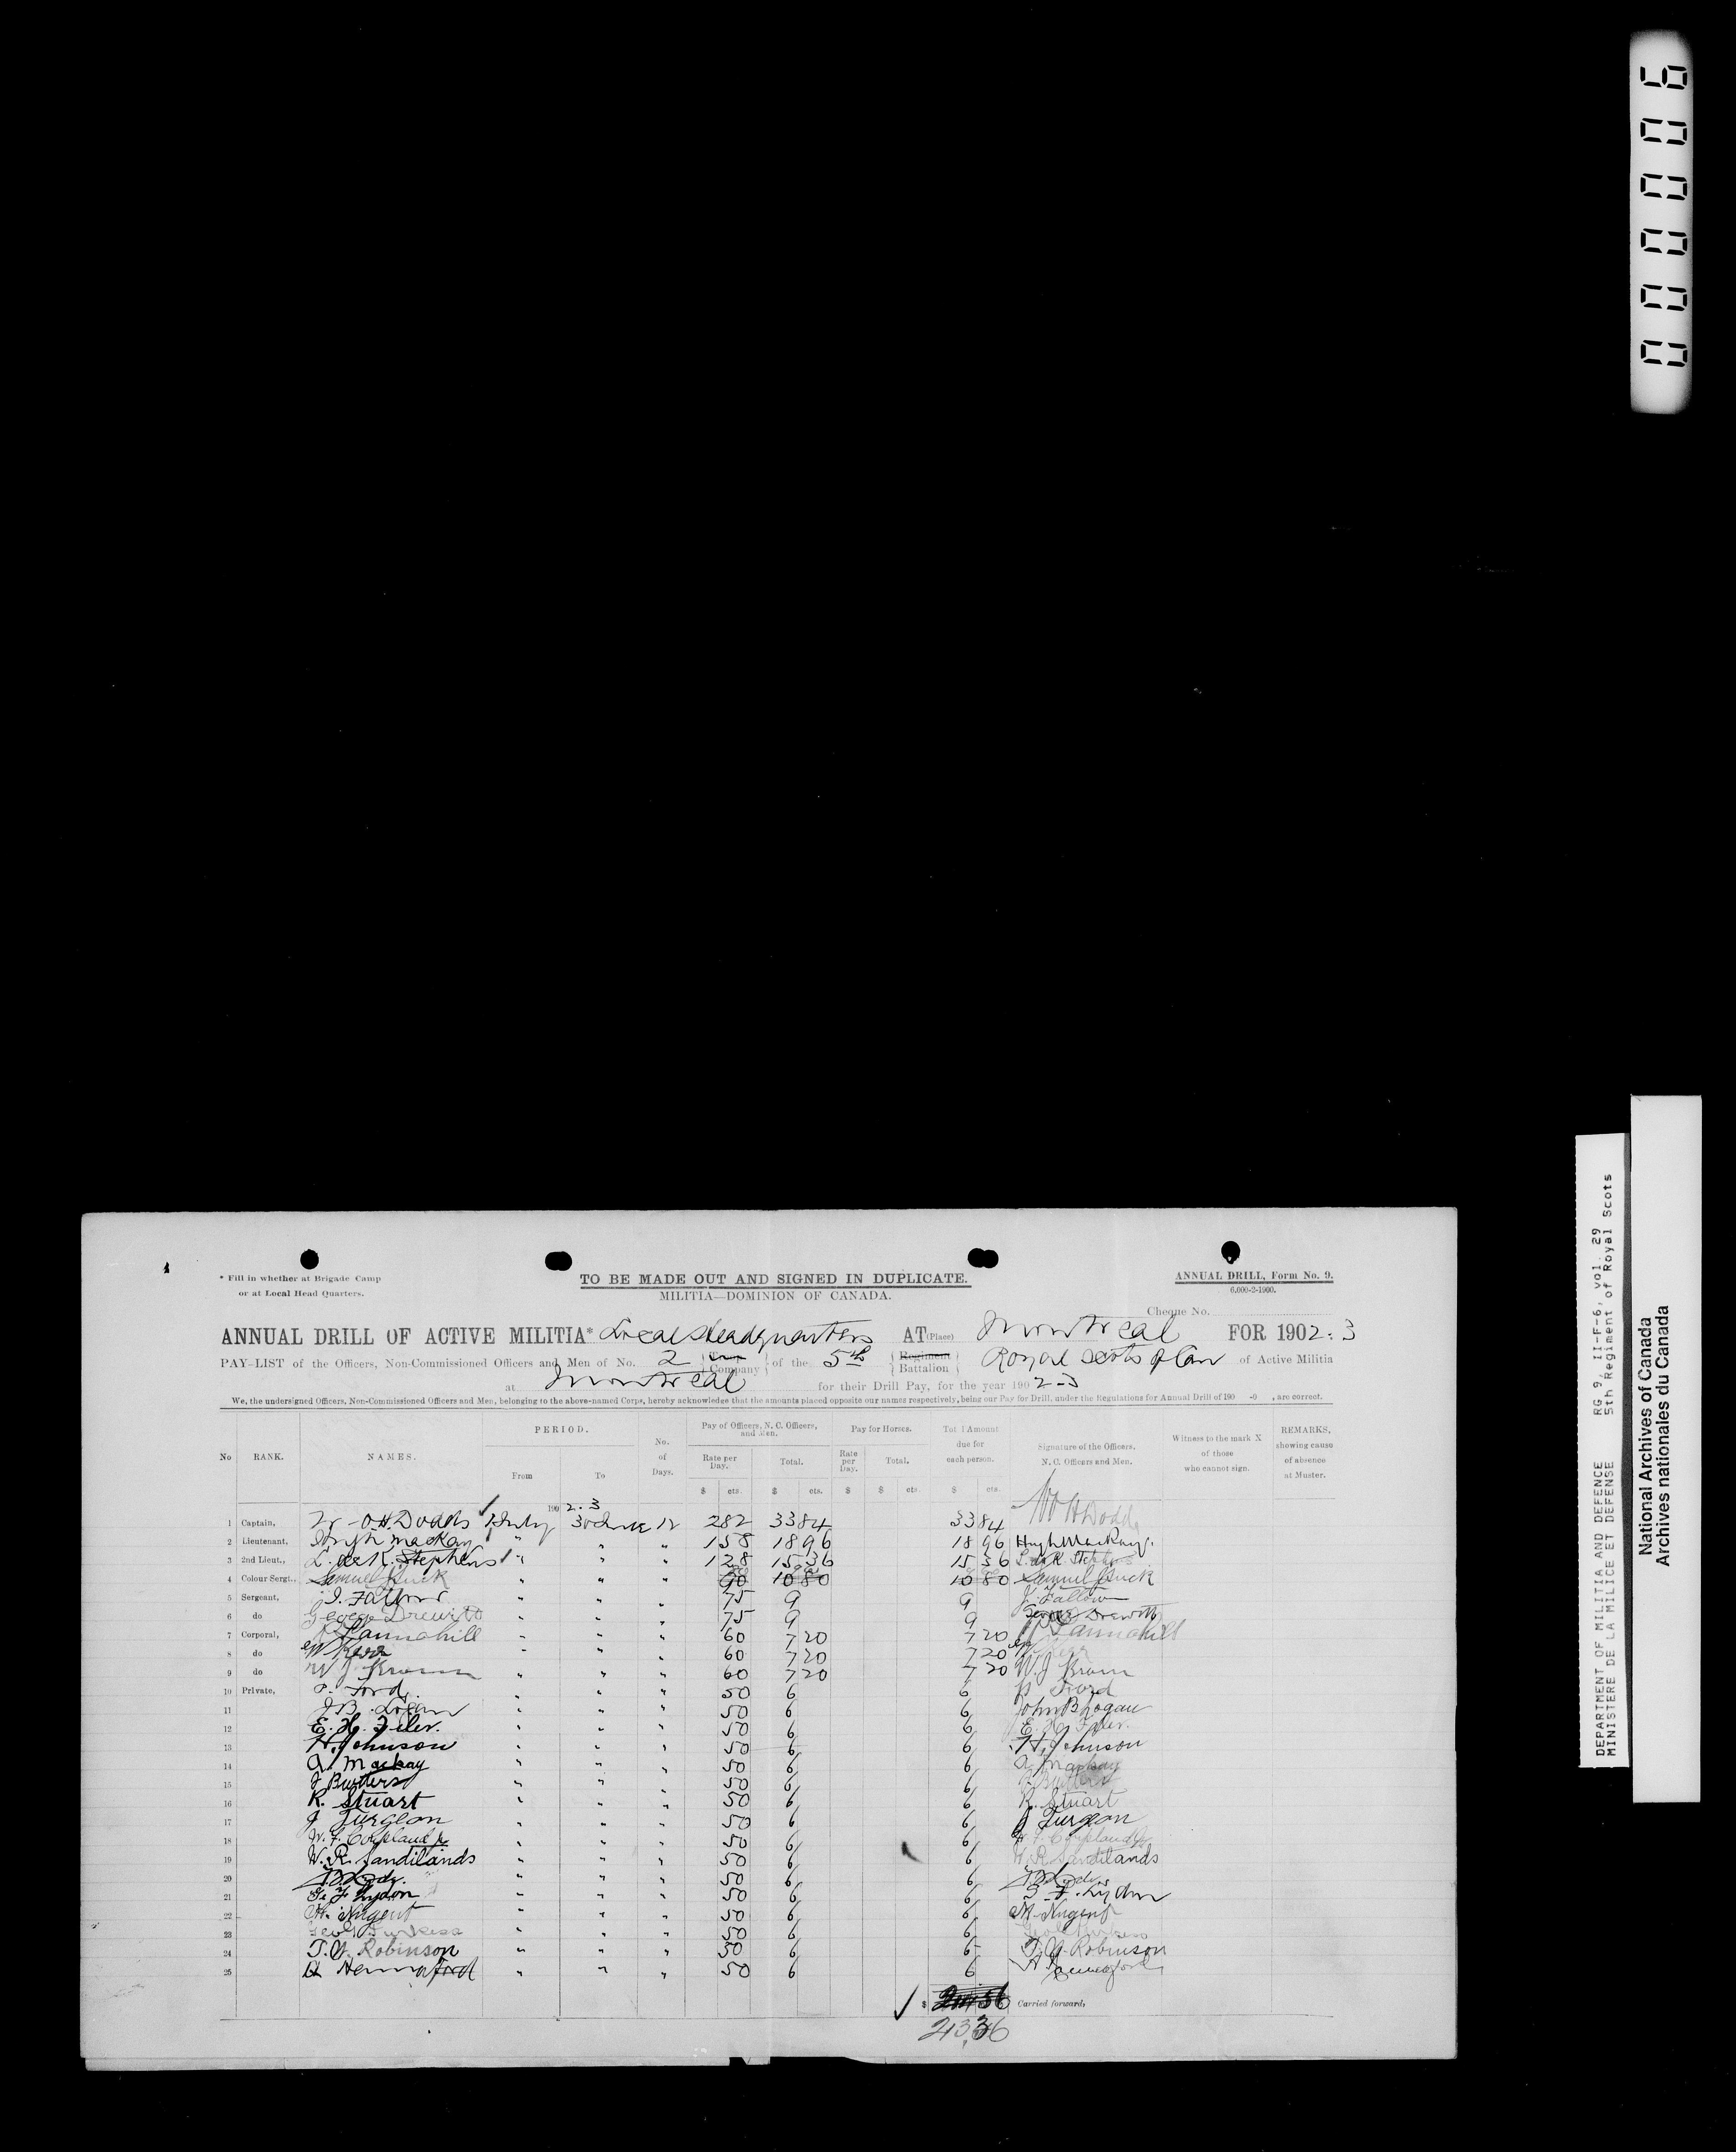 000006
* Fill in whether at Brigade Camp
or at Local Head Quarters.
TO BE MADE OUT AND SIGNED IN DUPLICATE.
MILITIA—DOMINION OF CANADA.
ANNUAL DRILL, Form No. 9.
6,000-2-1900.
Cheque No.
ANNUAL DRILL OF ACTIVE MILITIA* Local Headquarters AT (Place) Montreal FOR 1902-3
PAY-LIST of the Officers, Non-Commissioned Officers and Men of No. 2 Company of the 5th Regiment Battalion Royal Scots of Can of Active Militia
at Montreal for their Drill Pay, for the year 1902-3
We, the undersigned Officers, Non-Commissioned Officers and Men, belonging to the above-named Corps, hereby acknowledge that the amounts placed opposite our names respectively, being our Pay for Drill, under the Regulations for Annual Drill of 190 -0 , are correct.
No RANK. NAMES. PERIOD. From To No. of Days. Pay of Officers, N. C. Officers, and Men. Rate per Day. Total. Pay for Horses. Rate per Day. Total. Total Amount due for each person. Signature of the Officers, N. C. Officers and Men. Witness to the mark X of those who cannot sign. REMARKS, showing cause of absence at Muster.
$ cts. $ cts. $ $ cts. $ cts.
190 2-3
1 Captain, O.H. Dodds 1 July 30 June 12 282 3384 3384 Dodds
2 Lieutenant, Hugh Mackay " " " 158 1896 1896 Hugh Mackay.
3 2nd Lieut., L. de K. Stephens " " " 128 1536 1536 L. de K. Stephens
4 Colour Sergt., Samuel " " " 90 1080 1080 Samuel
5 Sergeant, J. Fallow " " " 75 9 9 J. Fallow
6 do George Drewitt " " " 75 9 9 George Drewitt
7 Corporal, Tannahill " " " 60 720 720 Tannahill
8 do W Kerr " " " 60 720 720 Kerr
9 do W J Brown " " " 60 720 720 W. J Brown
10 Private, Ford " " " 50 6 6 Ford
11 J. B. Logan " " " 50 6 6 John B Logan
12 E. H. " " " 50 6 6 E. H.
13 H. Johnson " " " 50 6 6 H. Johnson
14 A. Mackay " " " 50 6 6 A Mackay
15 J Butters " " " 50 6 6 J Butters
16 R. Stuart " " " 50 6 6 R. Stuart
17 J Turgeon " " " 50 6 6 J Turgeon
18 W. F. Copland Jr " " " 50 6 6 W. F. Copland Jr
19 W. R. Sandilands " " " 50 6 6 W. R. Sandilands
20 " " " 50 6 6
21 G. F. Lydon " " " 50 6 6 G. F. Lydon
22 M. Nugent " " " 50 6 6 M. Nugent
23 Geo " " " 50 6 6 Geo
24 T. Y. Robinson " " " 50 6 6 T. Y. Robinson
25 Hennaford " " " 50 6 6 Hennaford
$ Carried forward,
DEPARTMENT OF MILITIA AND DEFENCE RG 9, II-F-6, vol. 29
MINISTERE DE LA MILICE ET DEFENSE 5th Regiment of Royal Scots
National Archives of Canada
Archives nationales du Canada